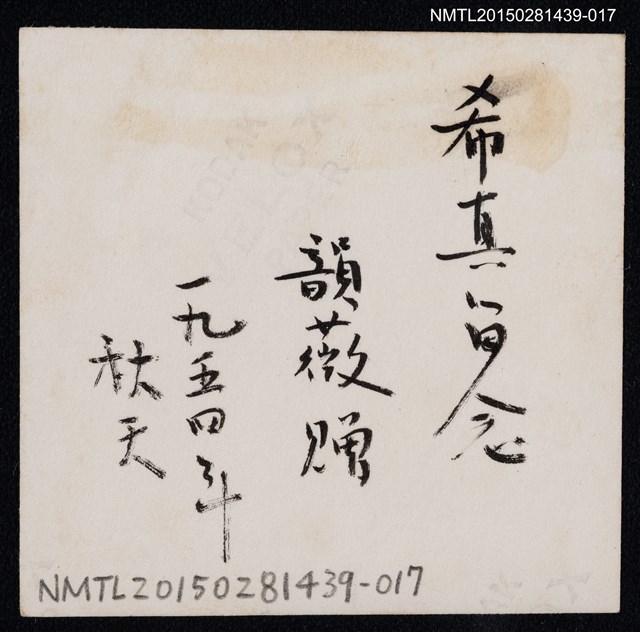 NMTL20150281439-017
希真留念
韻薇贈
一九五四年
秋天
NMTL20150281439-017